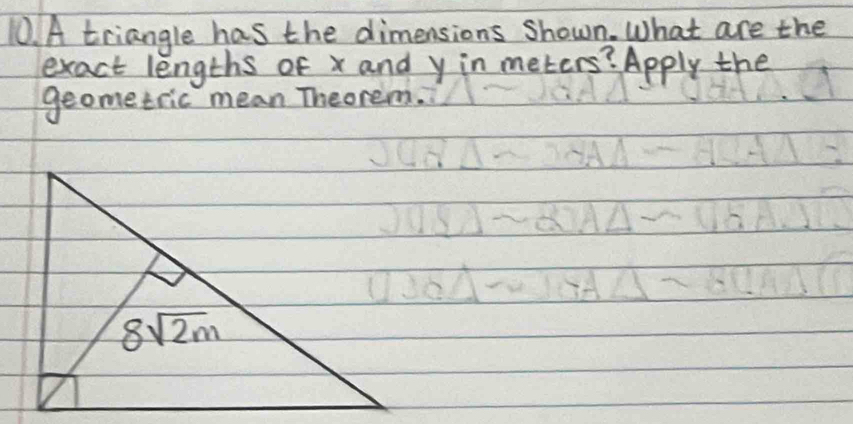 10. A triangle has the dimensions Shown. What are the
exact lengths of x and y in meters? Apply the
geometric mean Theorem.
8√2m